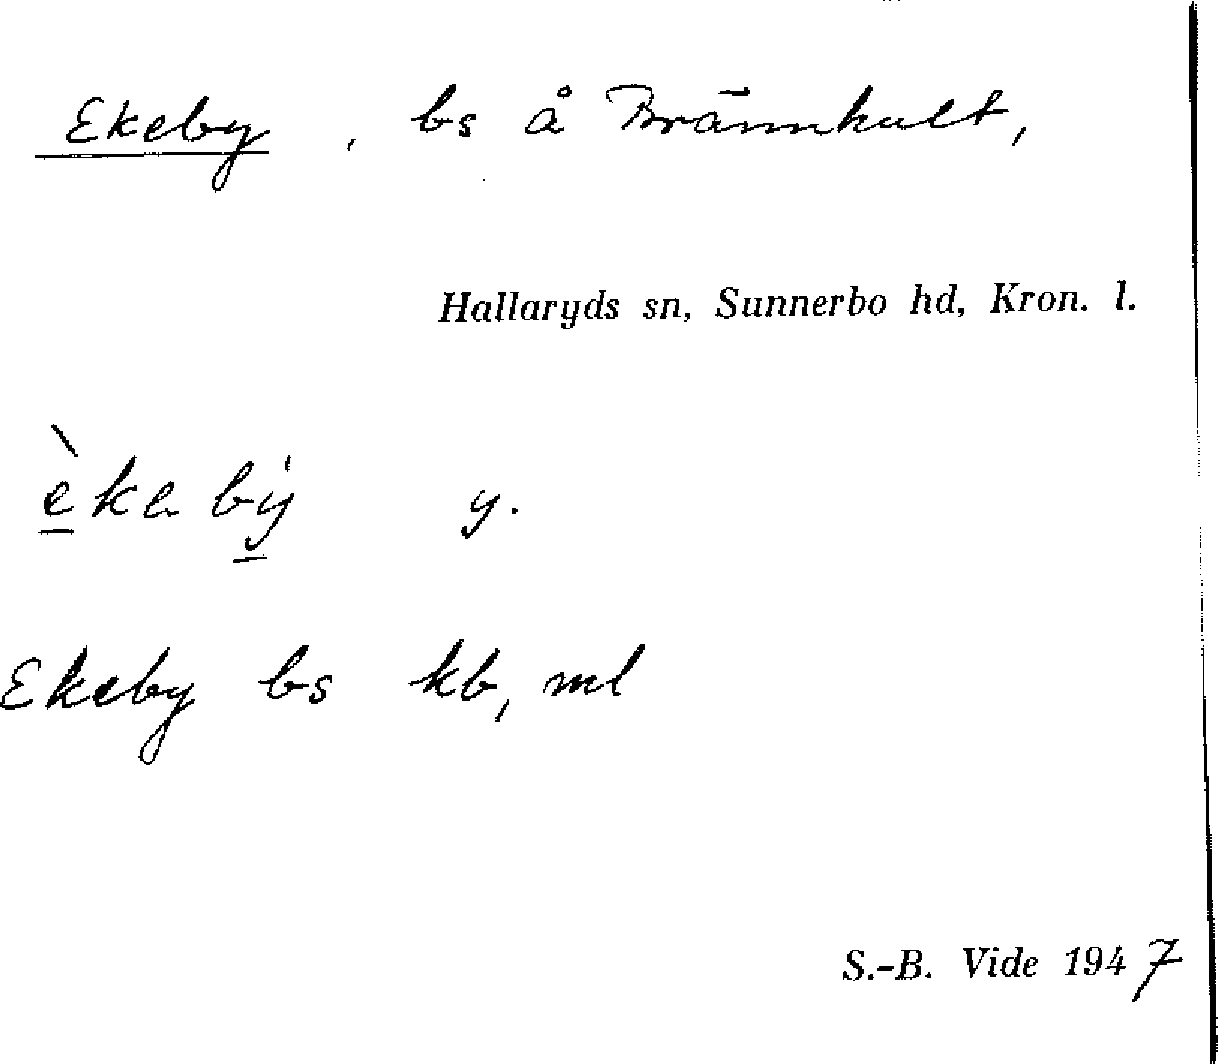 Ekeby, bs å Brännhult,
Hallaryds sn, Sunnerbo hd, Kron. l.
èkabý y.
Ekeby bs kb, ml
S.-B. Vide 1947